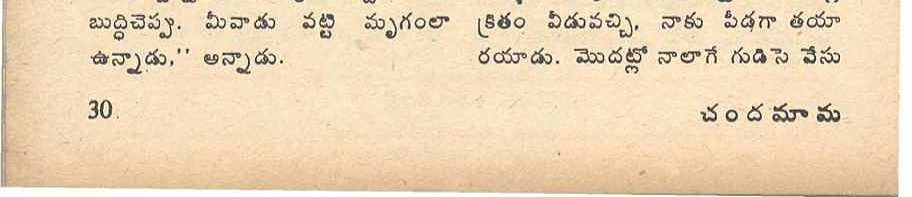 బుద్ధిచెప్పు. మీవాడు వట్టి మృగంలా
ఉన్నాడు,'' అన్నాడు.
క్రితం వీడువచ్చి, నాకు పీడగా తయా
రయాడు. మొదట్లో నాలాగే గుడిసె వేసు
30
చందమామ